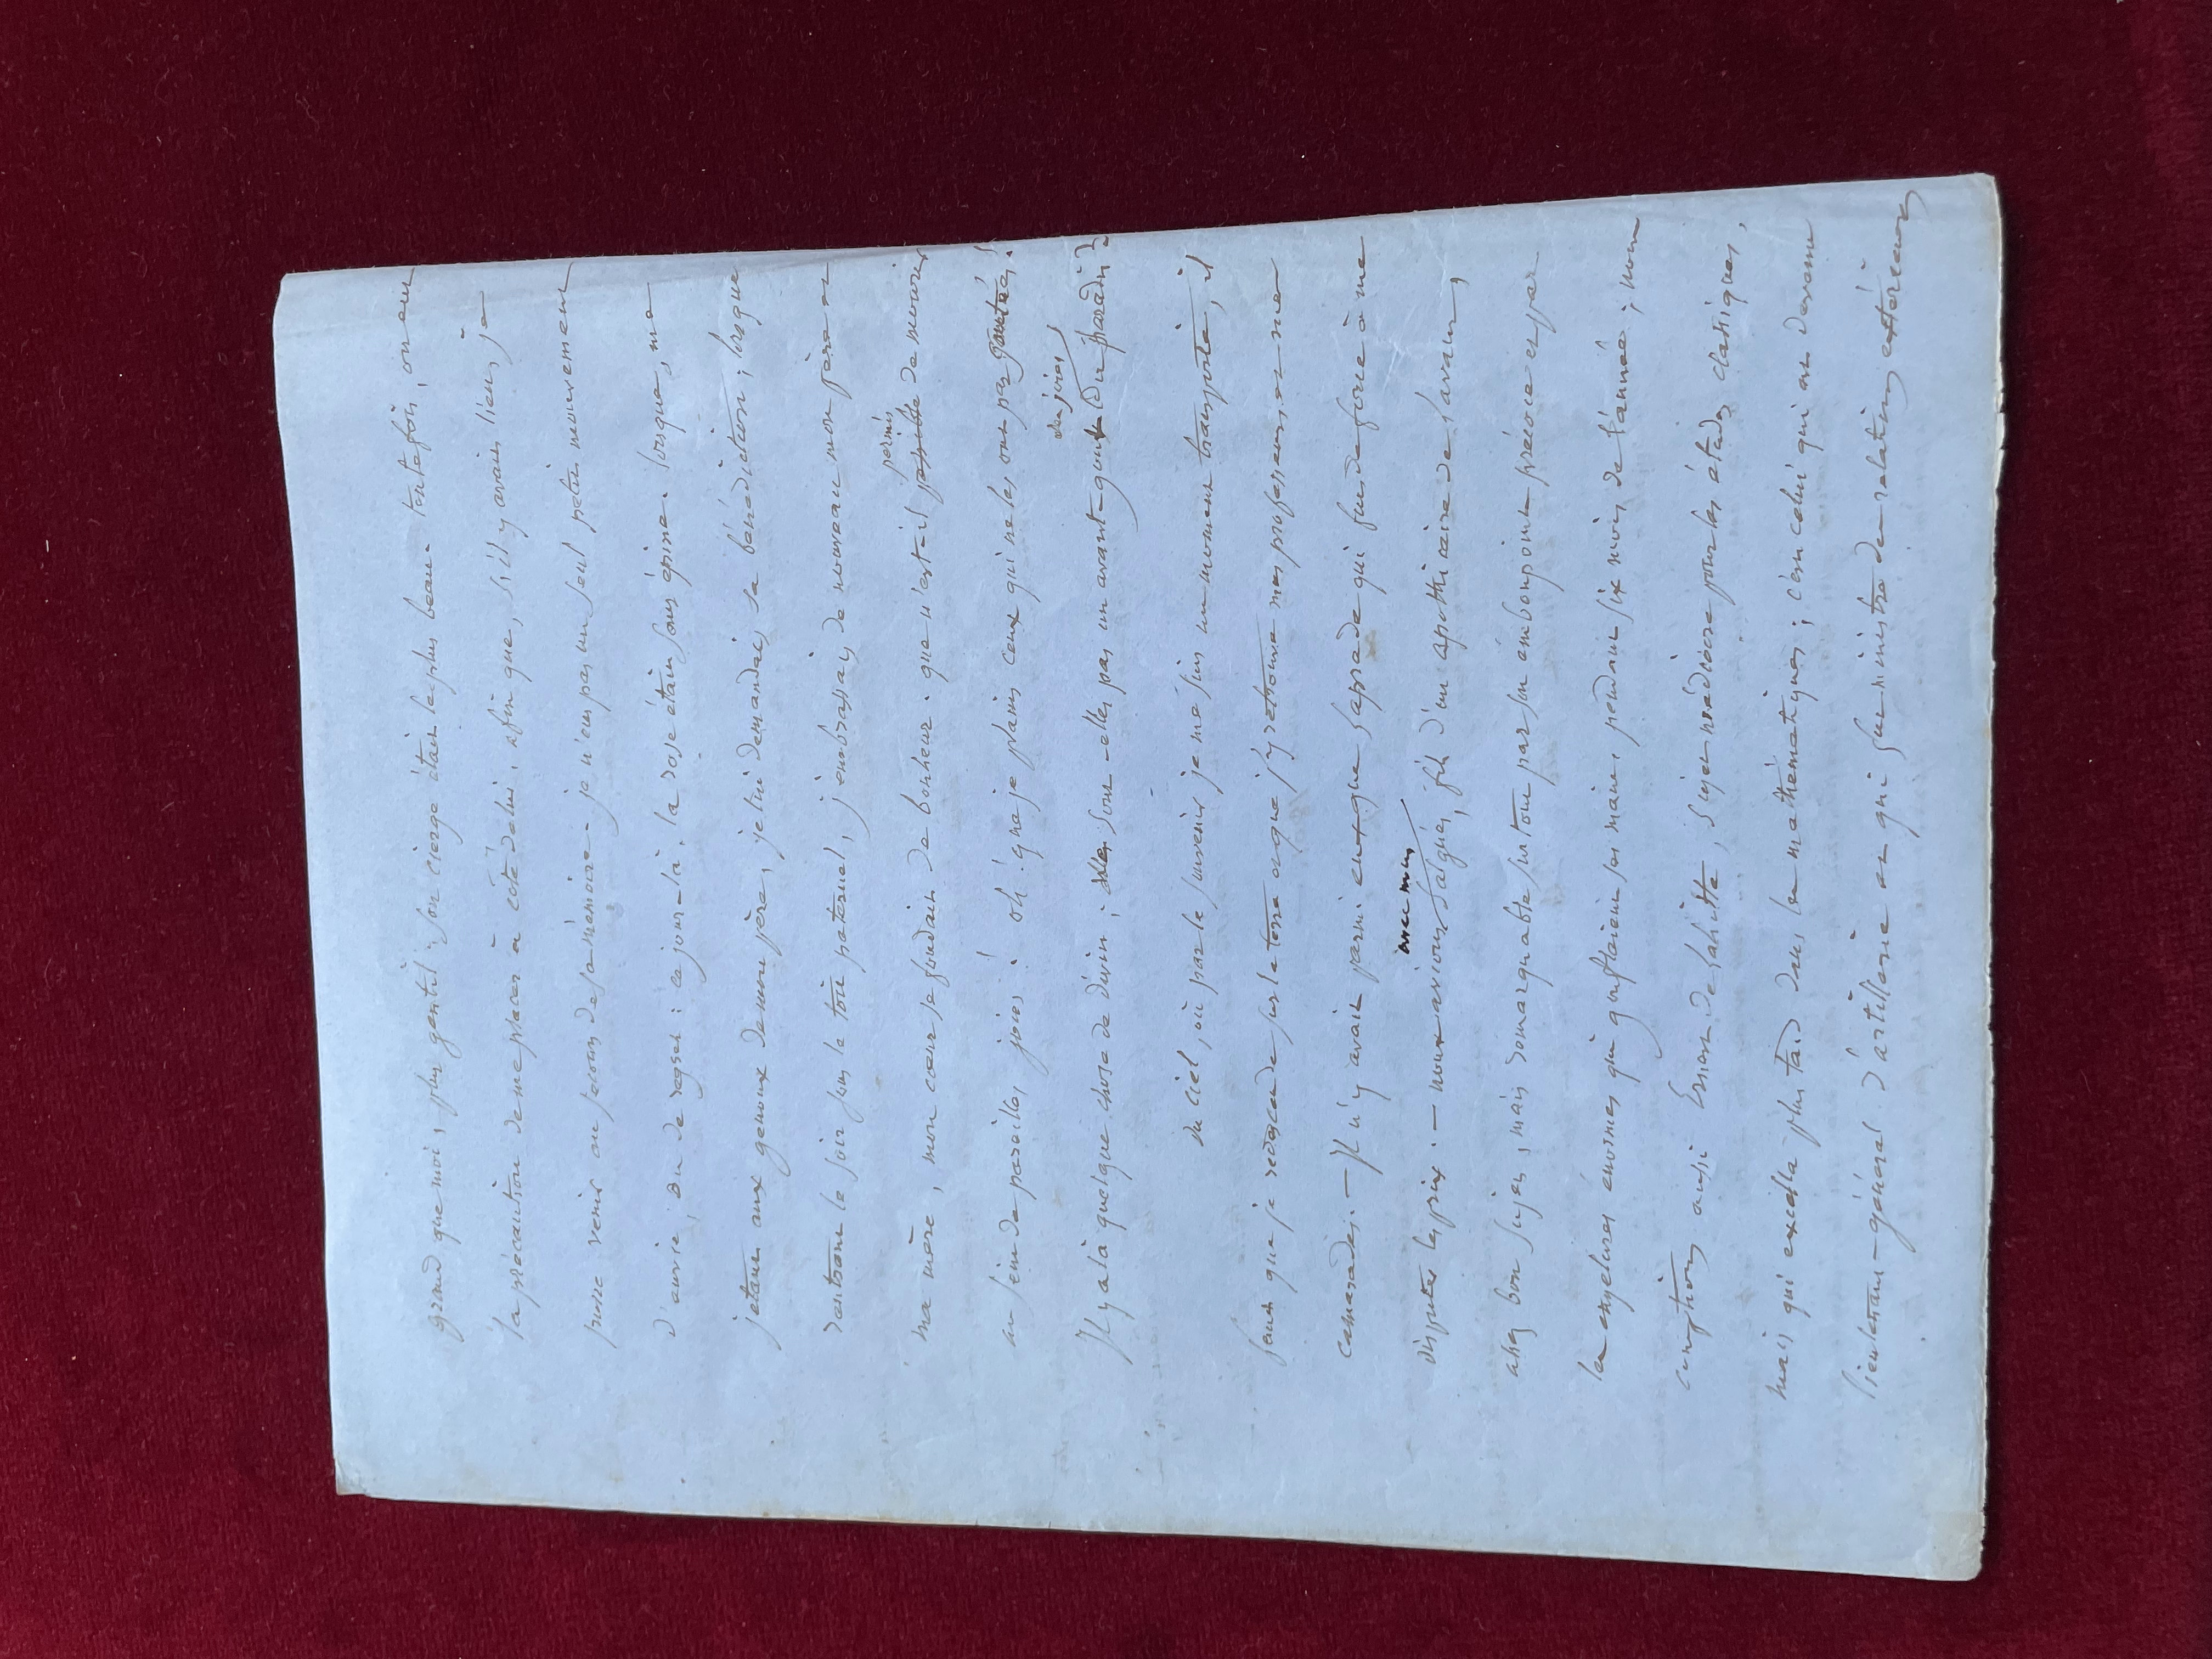 grand que moi, plus gentil ; son cierge était le plus beau. toutefois, on eut
la précaution de me placer à côté de lui, afin que, s'il y avait lieu, je
pusse venir au secours de sa mémoire. je n'eus pas un seul petit mouvement
d'envie, ou de regret : ce jour-là, la rose était sans épine. lorsque, me
jetant aux genoux de mon père, je lui demandai sa bénédiction ; lorsque
rentrant le soir sous le toit paternel, j'embrassais de nouveau mon père et
ma mère, mon cœur se fondait de bonheur. que n'est-il possible permis de mourir
au sein de pareilles joies ! oh ! que je plains ceux qui ne les ont pas goûtées !
Il y a là quelque chose de divin ; ne sont-elles pas un avant-goût des joies du paradis ?
du ciel, où par le souvenir je me suis un moment transporté, il
faut que je redescende sur la terre et que j'y retrouve mes professeurs et mes
camarades. — Il n'y avait parmi eux que Laprade qui fût de force à me
disputer les prix. — nous avions avec nous Salgues, fils d'un apothicaire de Lavaur,
assez bon sujet, mais remarquable surtout par son embonpoint précoce et par
les engelures énormes qui gonflaient ses mains pendant six mois de l'année ; nous
comptions aussi Ernest de Lahitte, sujet médiocre pour les études classiques,
mais qui excella plus tard dans les mathématiques ; c'est celui qui est devenu
lieutenant-général d'artillerie et qui fut ministre des relations extérieures